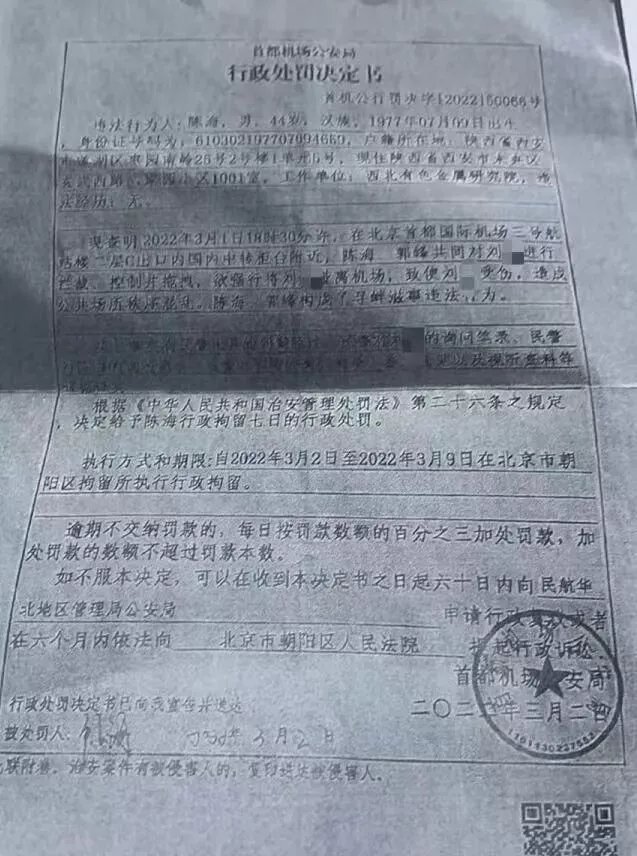 首都机场公安局
行政处罚决定书
首机公行罚决字[2022]50066号
违法行为人：陈海，男，44岁，汉族，1977年07月09日出生
，身份证号码为：610302197707094669，户籍所在地：陕西省西安
市 26号2号楼1单元5号，现住陕西省西安市未央区
小区1001室，工作单位：西北有色金属研究院，违
法经历：无。
现查明2022年3月1日18时30分许，在北京首都国际机场三号航
站楼二层G出口内国内中转柜台附近，陈海 郭峰共同对刘 进行
拦截、控制并拖拽，欲强行将刘 离机场，致使刘 受伤，造成
公共场所秩序混乱。陈海 郭峰构成了寻衅滋事违法 为。
的询问笔录、民警
以及视听资料等
根据《中华人民共和国治安管理处罚法》第二十六条之规定
，决定给予陈海行政拘留七日的行政处罚。
执行方式和期限:自2022年3月2日至2022年3月9日在北京市朝
阳区拘留所执行行政拘留。
逾期不交纳罚款的，每日按罚款数额的百分之三加处罚款，加
处罚款的数额不超过罚款本数。
如不服本决定，可以在收到本决定书之日起六十日内向 民航华
北地区管理局公安局 申请行政复议或者
在六个月内依法向 北京市朝阳区人民法院 提起行政诉讼
首都机场公安局
二〇二二年三月二日
行政处罚决定书已向我宣告并送达
被处罚人： 3月2日
联附卷。治安案件有被侵害人的，复印送达被侵害人。